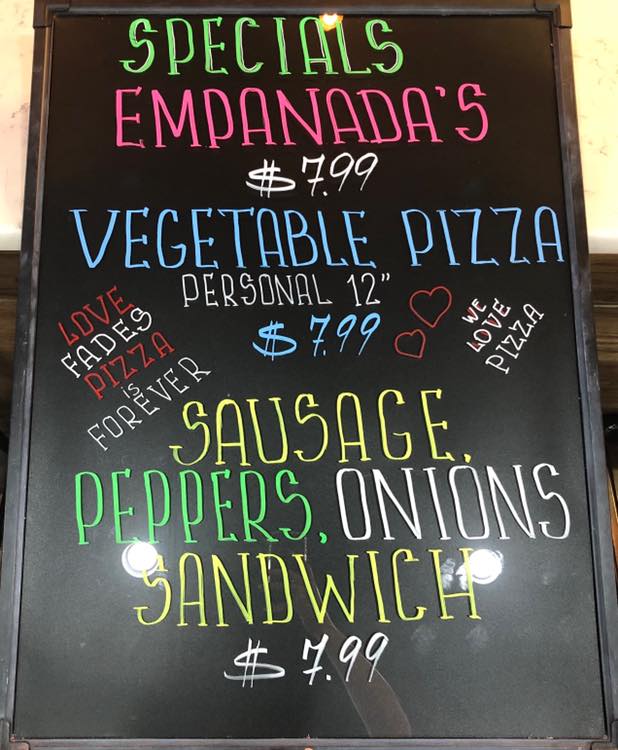 SPECIALS
EMPANADA'S
$7.99
VEGETABLE PIZZA
PERSONAL 12"
$7.99
LOVE
FADES
PIZZA
is
FOREVER
WE
LOVE
PIZZA
SAUSAGE,
PEPPERS, ONIONS
SANDWICH
$7.99